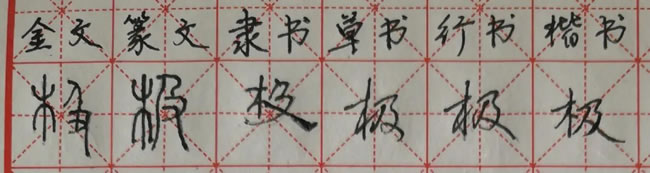 金文 篆文 隶书 草书 行书 楷书
极 极 极 极 极 极